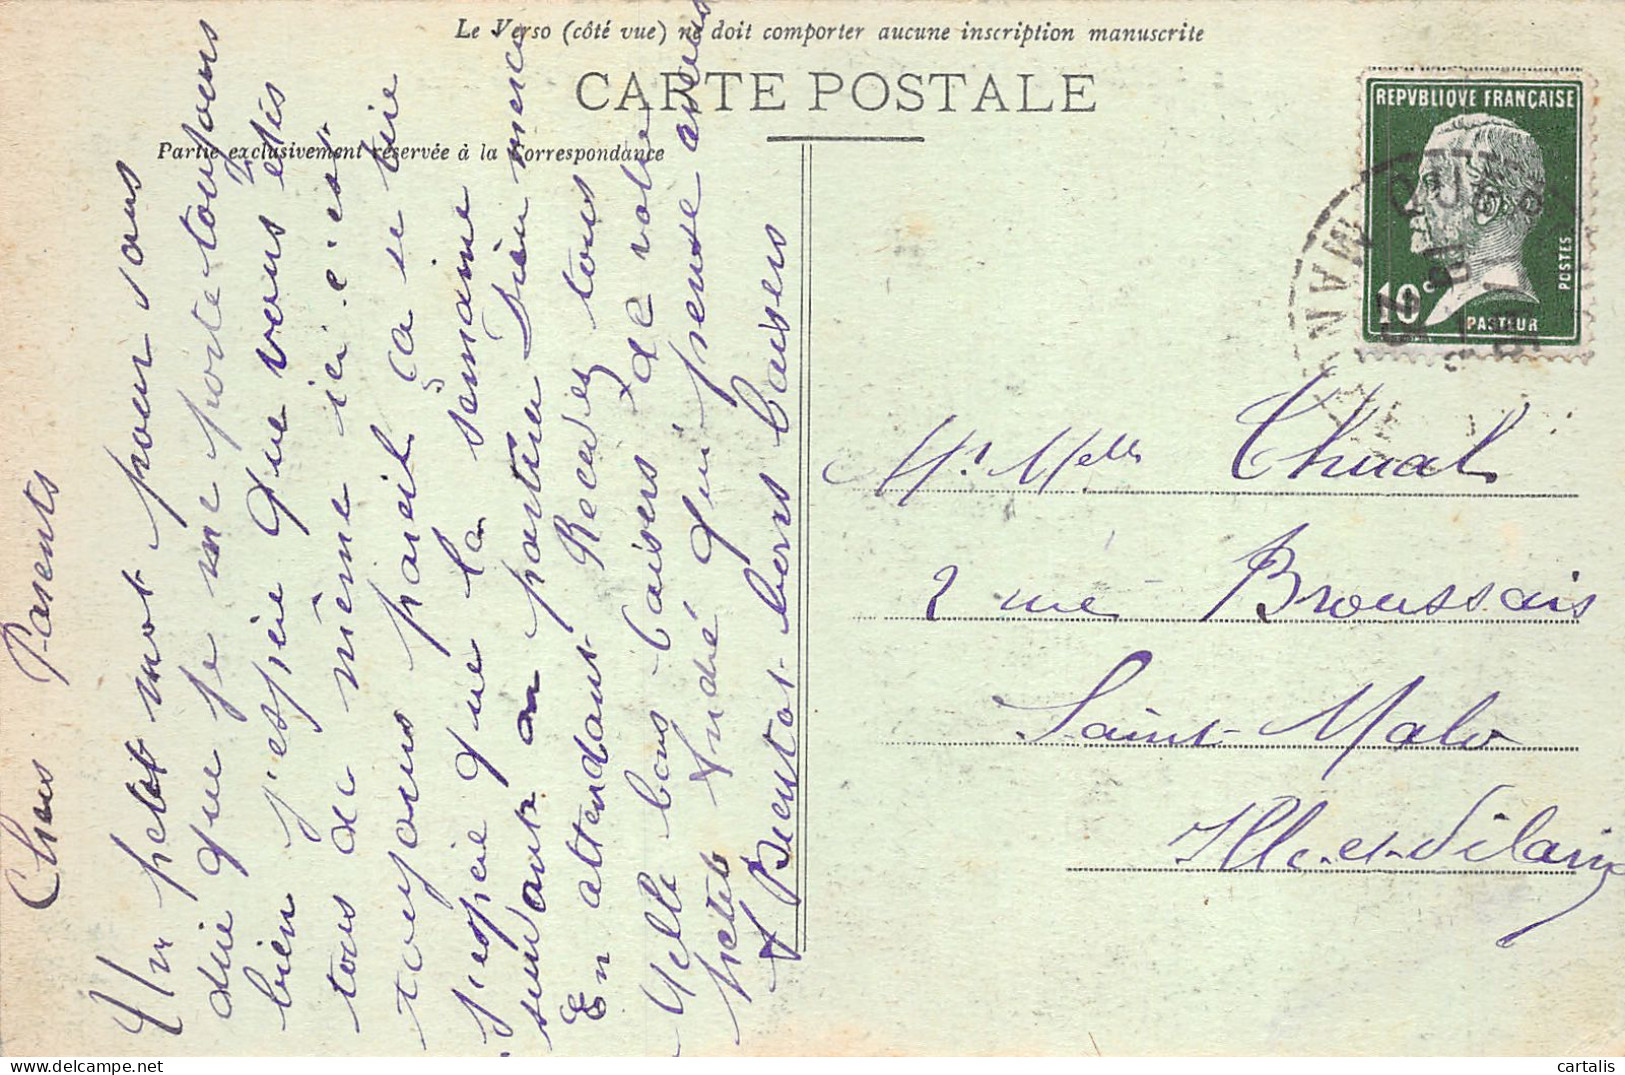 Le Verso (côté vue) ne doit comporter aucune inscription manuscrite
CARTE POSTALE
Partie exclusivement réservée à la Correspondance
REPVBLIQVE FRANÇAISE
POSTES
10c
PASTEUR
Chers Parents
Un petit mot pour vous
dire que je me porte toujours
bien j'espère que vous êtes
tous de même ici c'est
toujours pareil ça se tire
j'espère que la semaine
suivante on partira
En attendant Recevez tous
bons baisers de votre
André qui pense à vous
A Bientot bons baisers
Mr Melle Thual
2 rue Broussais
Saint-Malo
Ille-et-Vilaine
cartalis